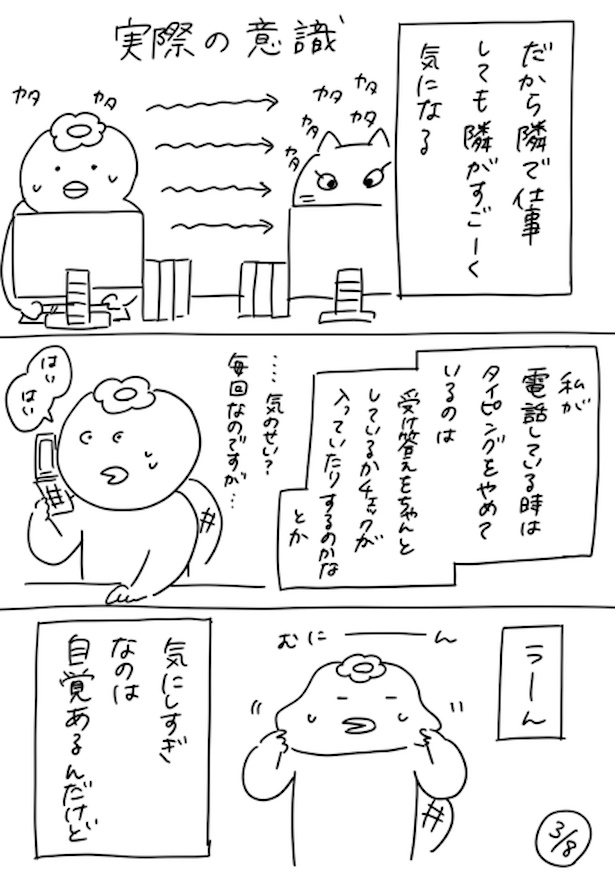 実際の意識
だから隣で仕事
しても隣がすごーく
気になる
カタ
カタ
カタ
カタ
カタ
カタ
カタ
私が
電話している時は
タイピングをやめて
いるのは
受け答えをちゃんと
しているかチェックが
入っていたりするのかな
とか
‥‥気のせい?
毎回なのですが…
はい
はい
うーん
むにーーん
気にしすぎ
なのは
自覚あるんだけど
3/8